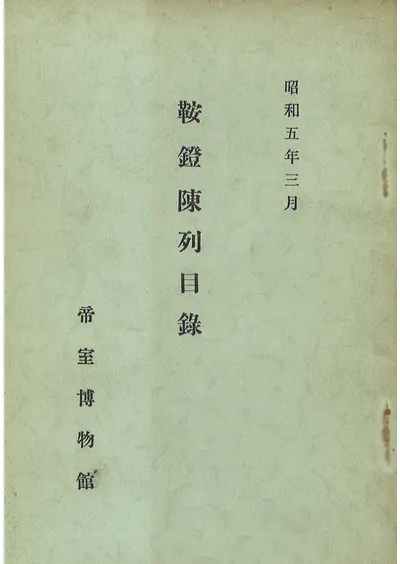 昭和五年三月
鞍鐙陳列目錄
帝室博物館